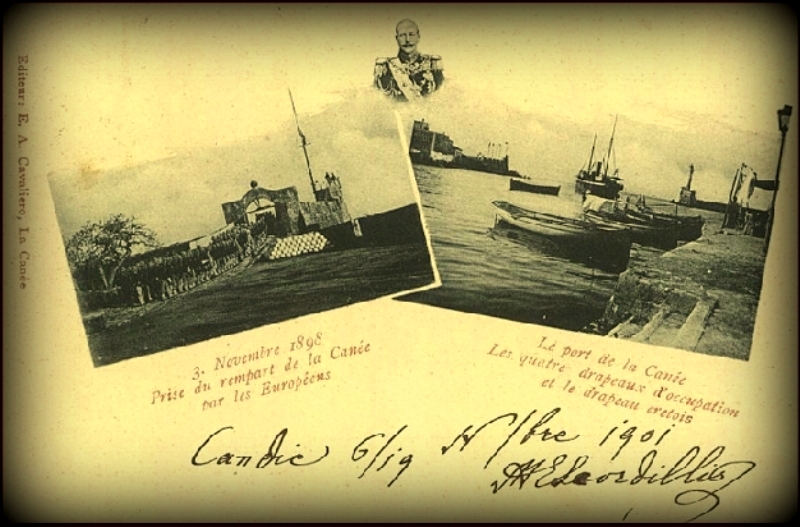 Editeur: E. A. Cavaliero, La Canée
3. Novembre 1898
Prise du rempart de la Canée
par les Européens
Le port de la Canée
Les quatre drapeaux d'occupation
et le drapeau crétois
Candie 6/19 N/bre 1901